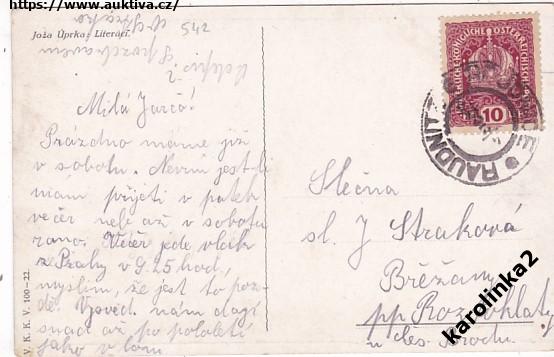 https://www.auktiva.cz/
Joža Úprka: Literáci.
542
Milá Jarčo!
Prázdno máme již
v sobotu. Nevím jest-li
mám přijeti v pátek
večer nebo až v sobotu
ráno. Večer jede vlak
z Prahy v 9.25 hod,
myslím, že jest to poz-
dě. Vysvěd. nám dají
snad až po pololetí
jako v loni
V. K. K. V. 100-22.
10
RAUDNITZ
Slečna
sl. J. Straková
Břežany
pp Rozpohlaty
u Čes. Brodu
karolinka2